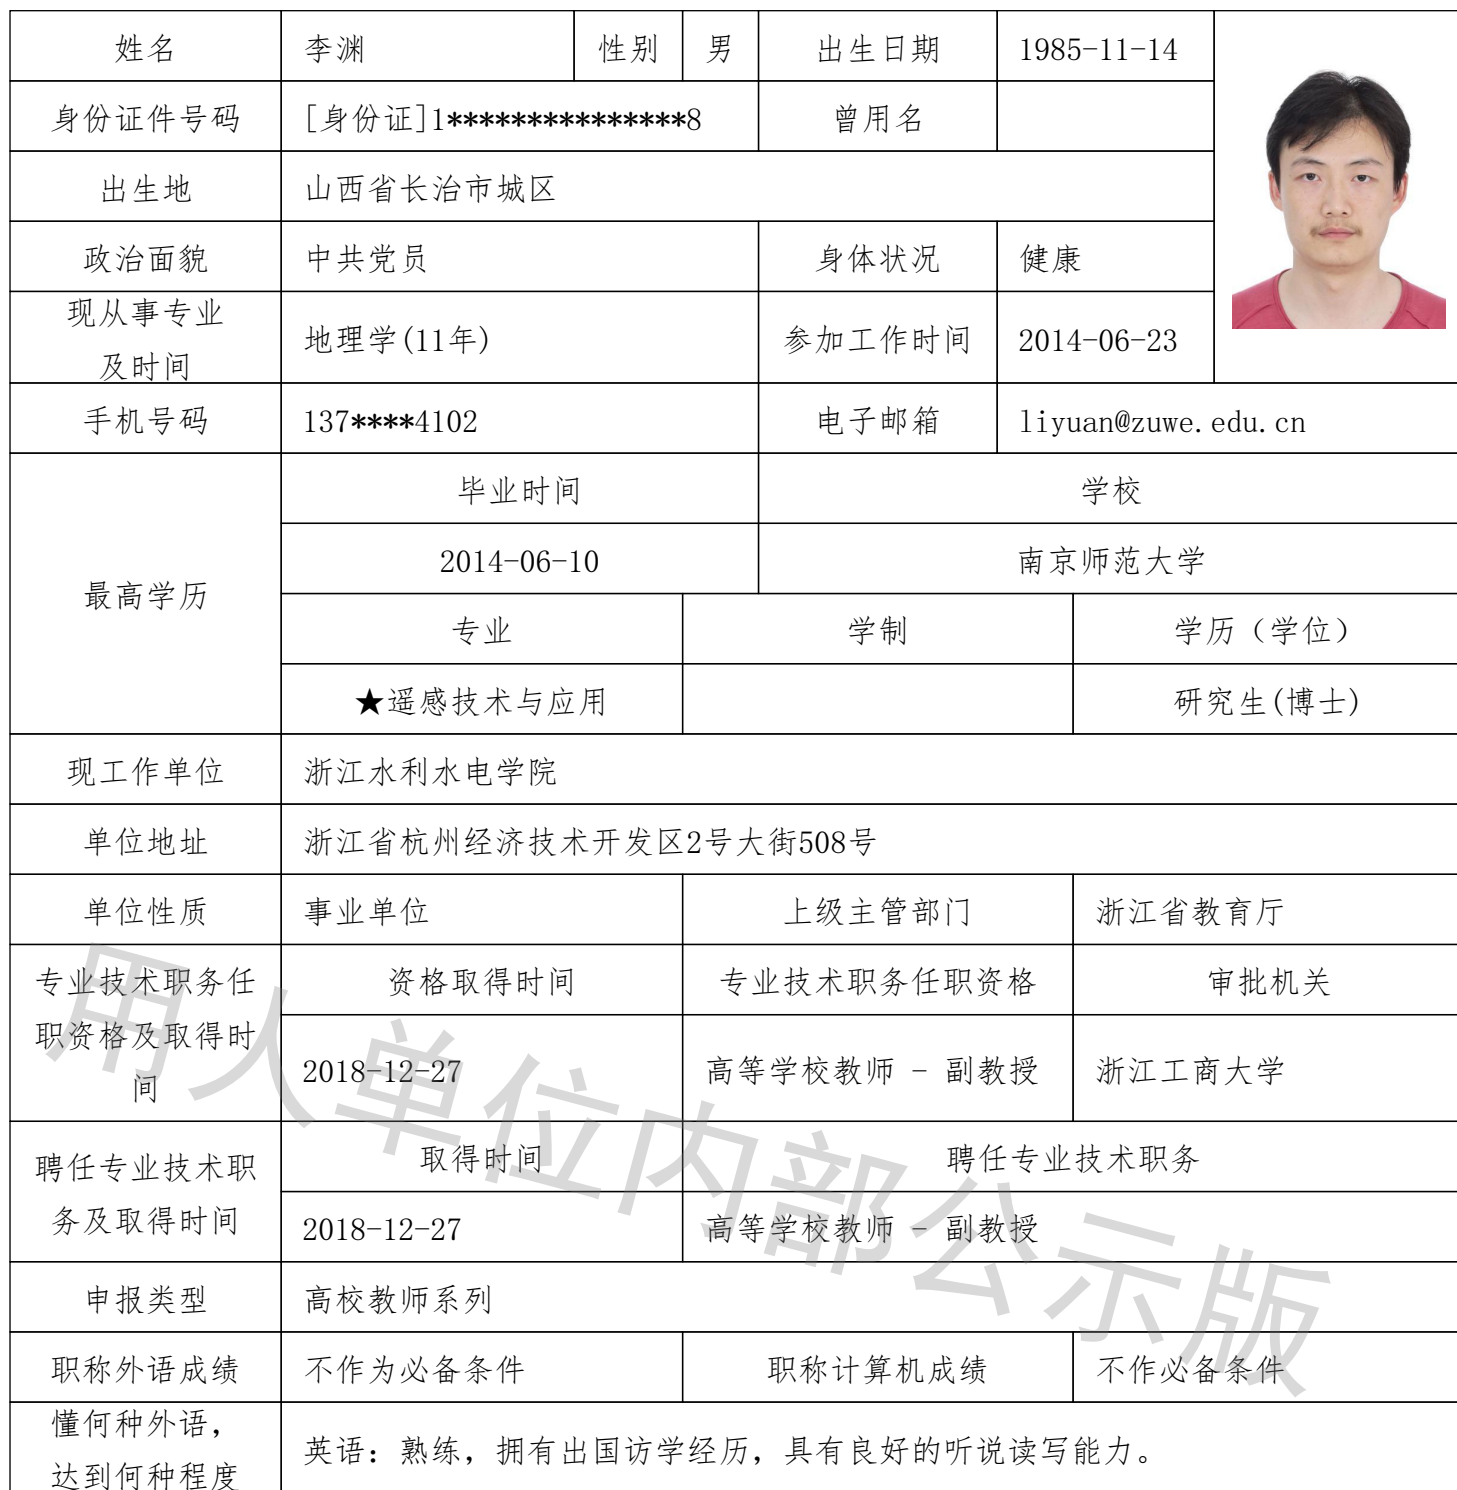 姓名 李渊 性别 男 出生日期 1985-11-14
身份证件号码 [身份证]1***************8 曾用名
出生地 山西省长治市城区
政治面貌 中共党员 身体状况 健康
现从事专业
及时间 地理学(11年) 参加工作时间 2014-06-23
手机号码 137****4102 电子邮箱 liyuan@zuwe.edu.cn
最高学历
毕业时间 学校
2014-06-10 南京师范大学
专业 学制 学历（学位）
★遥感技术与应用 研究生(博士)
现工作单位 浙江水利水电学院
单位地址 浙江省杭州经济技术开发区2号大街508号
单位性质 事业单位 上级主管部门 浙江省教育厅
专业技术职务任
职资格及取得时
间
资格取得时间 专业技术职务任职资格 审批机关
2018-12-27 高等学校教师 - 副教授 浙江工商大学
聘任专业技术职
务及取得时间
取得时间 聘任专业技术职务
2018-12-27 高等学校教师 - 副教授
申报类型 高校教师系列
职称外语成绩 不作为必备条件 职称计算机成绩 不作必备条件
懂何种外语，
达到何种程度 英语：熟练，拥有出国访学经历，具有良好的听说读写能力。
用人单位内部公示版